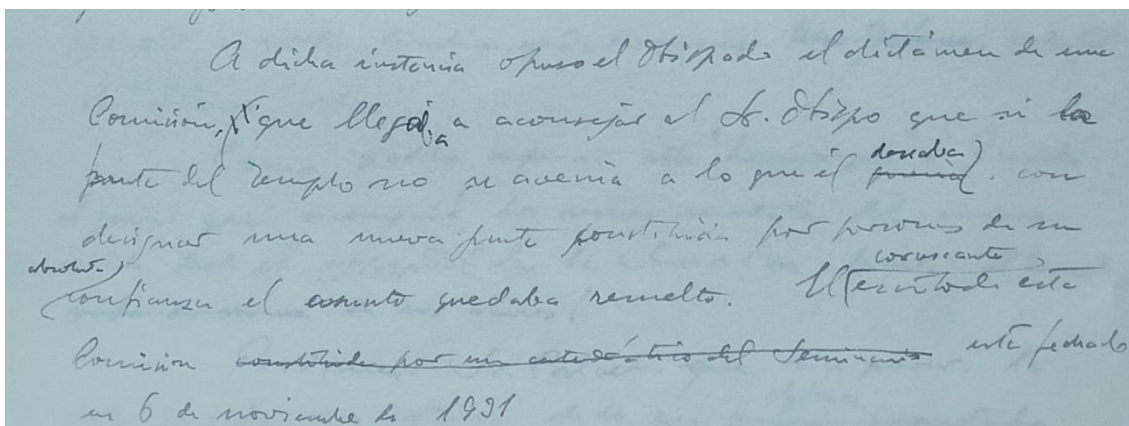 A dicha instancia opuso el Obispado el dictámen de una
Comisión, que llegaba a aconsejar al Sr. Obispo que si la
Junta del Templo no se avenia a lo que él deseaba con
designar una nueva junta constituida por personas de su
absoluta confianza el asunto quedaba resuelto. El coruscante escrito de esta
Comisión constituida por un catedrático del Seminario está fechado
en 6 de noviembre de 1931